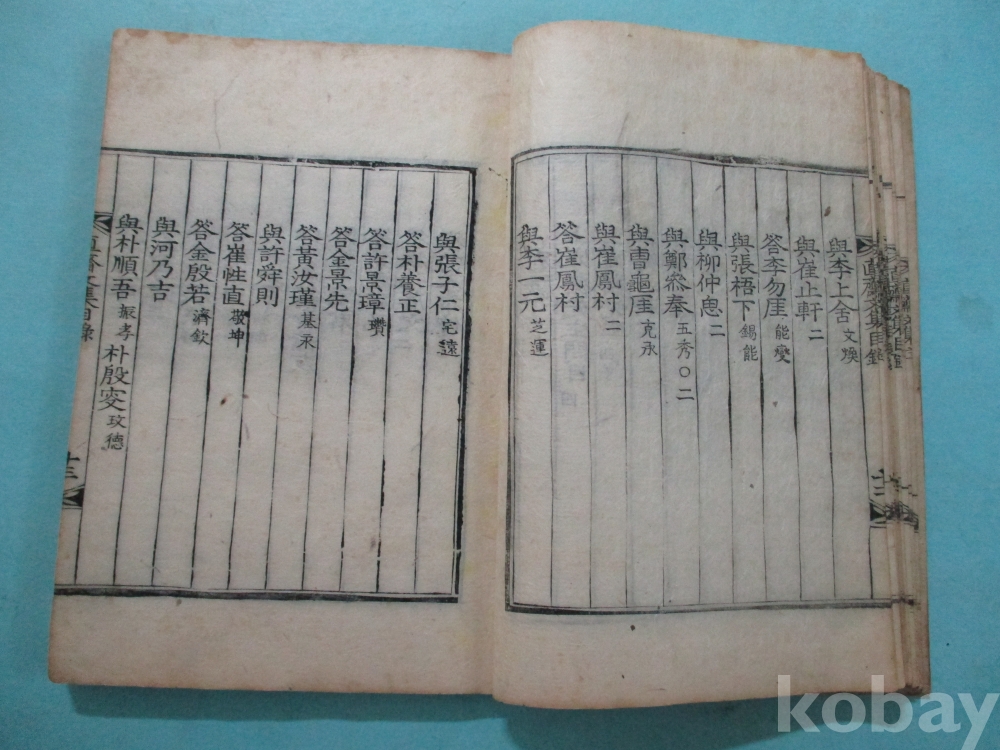 與李上舍 文煥
與崔止軒 二
答李勿厓 能燮
與張梧下 錫能
與柳仲息
與鄭叅奉 五秀○二
與曺龜厓 克承
與崔鳳村 二
答崔鳳村
與李一元 芝運
與張子仁 宅遠
答朴養正
答許景璋 瓚
答金景先
答黃汝瑾 基永
與許舜則
答崔性直 敬坤
答金殷若 濟欽
與河乃吉
與朴順吾 振孝 朴殷 玟德
十三
kobay